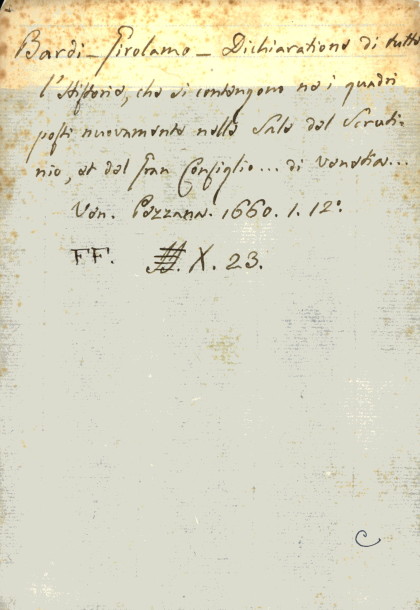 Bardi - Girolamo - Dichiaratione di tutte
l'Historie, che si contengono ne i quadri
posti nuovamente nelle Sale del Scruti-
nio, et del Gran Consiglio... di Venetia...
Ven. Pezzana. 1660. 1. 12°.
FF. X. 23.
C